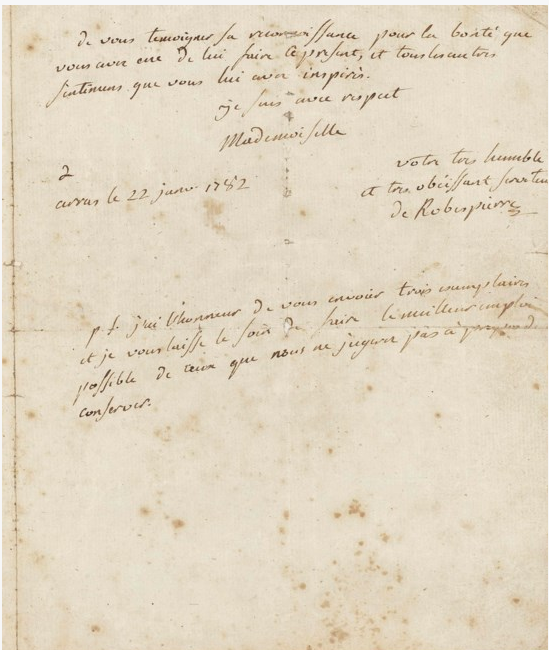 de vous temoigner sa reconnoissance pour la bonté que
vous avez eue de lui faire ce present, et tous les autres
sentimens que vous lui avez inspirés.
je suis avec respect
Mademoiselle
votre tres humble
et tres obéissant serviteur
de Robespierre
arras le 22 janv. 1782
p s j'ai l'honneur de vous envoier trois exemplaires
et je vous laisse le soin de faire le meilleur emploi
possible de ceux que vous ne jugerez pas à propos de
conserver.